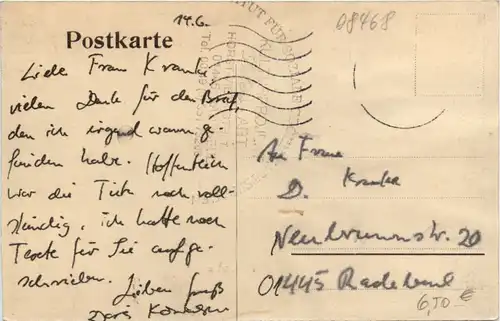 14.6.
08468
Postkarte
Liebe Frau Kranke
vielen Dank für den Brief,
den ich irgendwann ge-
funden habe. Hoffentlich
war die noch voll-
ständig, ich hatte noch
Texte für Sie aufge-
schrieben.
Lieben Gruß
An Frau
D. Kranke
Neubrunnstr. 20
01445 Radebeul
6,50 €